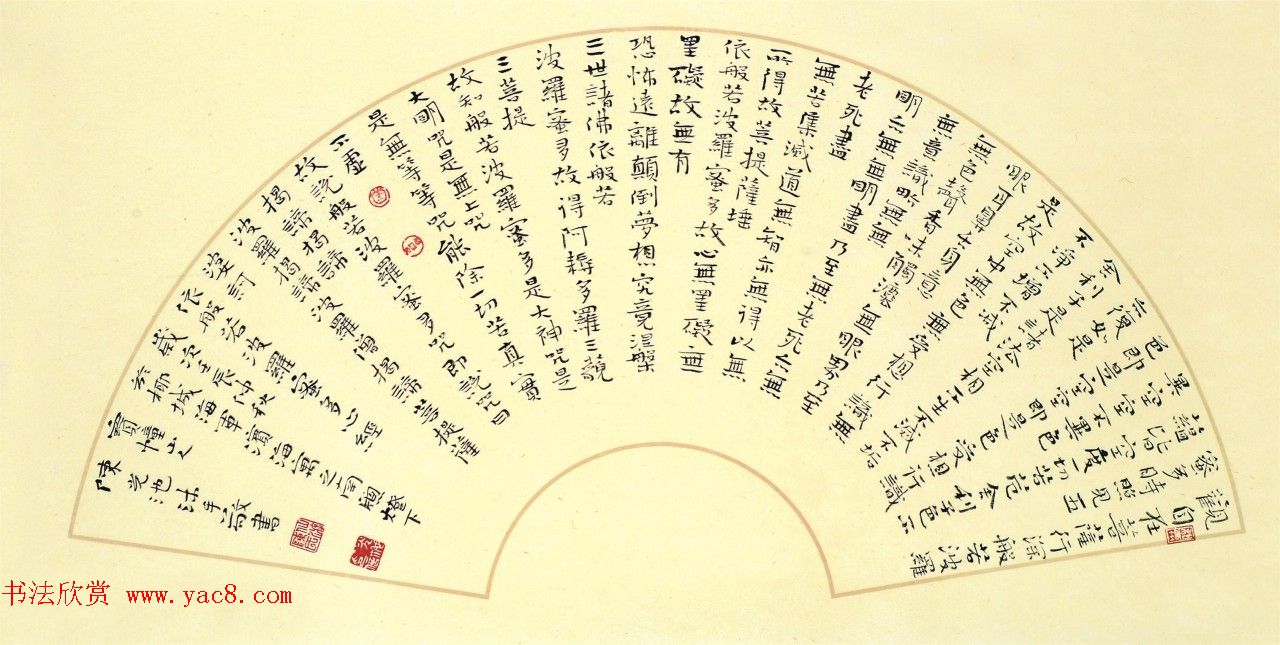 觀自在菩薩行深般若波羅
蜜多時照見五
蘊皆空度一切苦厄舍利子色不
異空空不異色
色即是空空即是色受想行識
亦復如是
舍利子是諸法空相不生不滅不垢
不淨不增不減
是故空中無色無受想行識無
眼耳鼻舌身意
無色聲香味觸法無眼界乃至
無意識界無無
明亦無無明盡乃至無老死亦無
老死盡
無苦集滅道無智亦無得以無
所得故菩提薩埵
依般若波羅蜜多故心無罣礙無
罣礙故無有
恐怖遠離顛倒夢想究竟涅槃
三世諸佛依般若
波羅蜜多故得阿耨多羅三藐
三菩提
故知般若波羅蜜多是大神咒是
大明咒是無上咒
是無等等咒能除一切苦真實
不虛
故說般若波羅蜜多咒即說咒曰
揭諦揭諦
波羅揭諦波羅僧揭諦菩提薩
婆訶
依般若波羅蜜多心經
歲次壬辰仲秋
海軍濱海寓之南窗燈下
寶幢山人
陳沐手敬書
书法欣赏 www.yac8.com